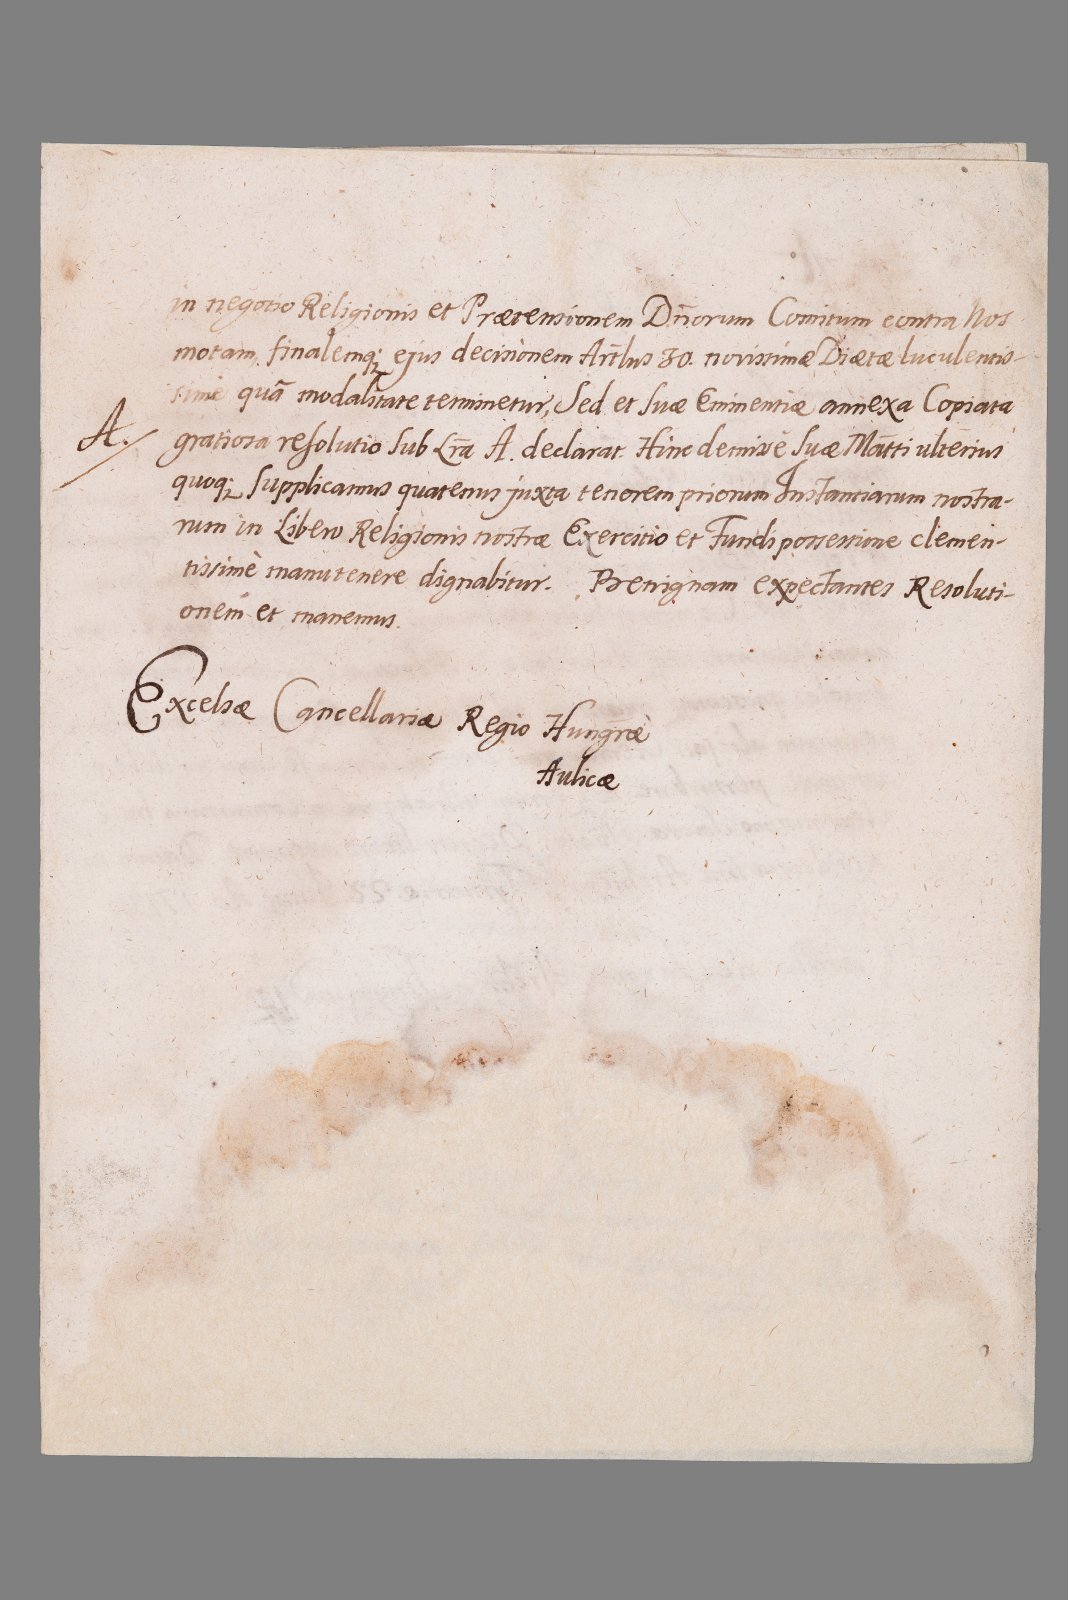 in negotio Religionis et Prætensionem Dn̄orum Comitum contra Nos
motam, finalemq; ejus decisionem Art̄lus 30. novissimæ Diætæ luculentis-
simè quā modalitate terminetur, Sed et Suæ Eminentiæ annexa Copiata
A. gratiosa resolutio sub Lr̄a A. declarat. Hinc demisse Suæ Mātti ulterius
quoq; supplicamus quatenus juxta tenorem priorum Instantiarum nostra-
rum in Libero Religionis nostræ Exercitio et Fundi possessione clemen-
tissimè manutenere dignabitur. Benignam expectantes Resoluti-
onem et manemus.
Excelsæ Cancellariæ Regio Hungræ
Aulicæ